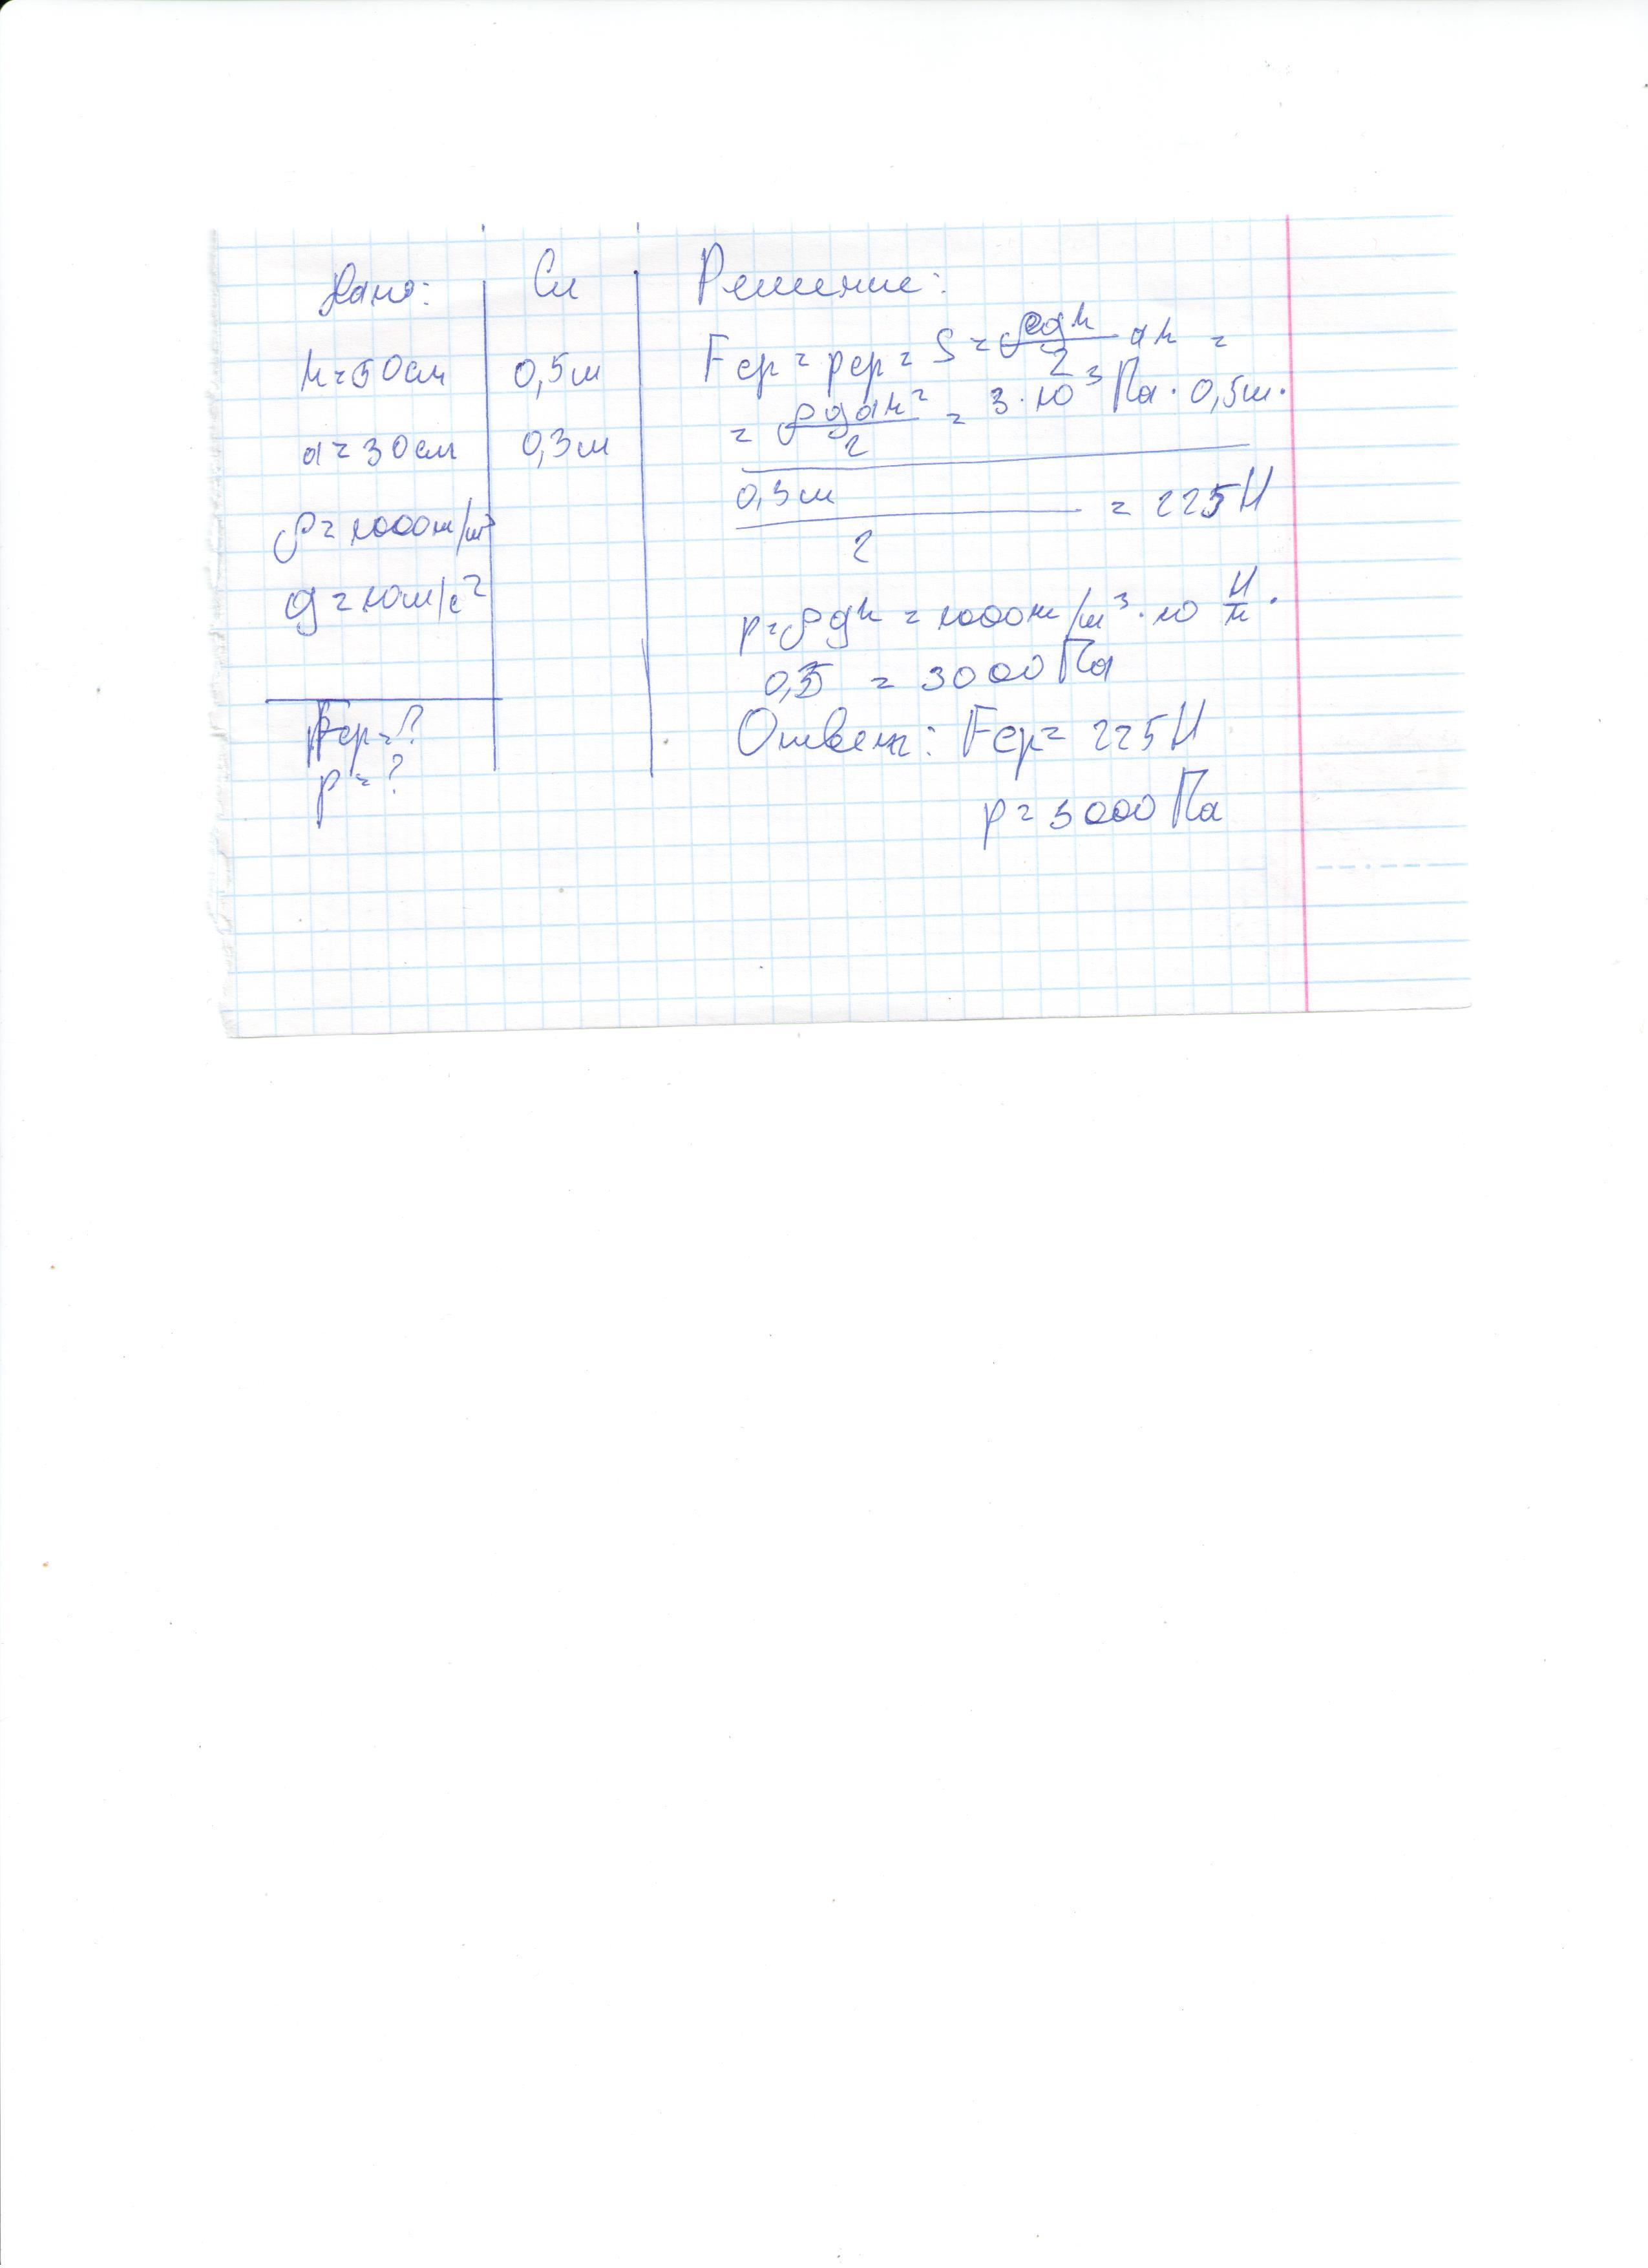 Дано:
h = 50 см
a = 30 см
ρ = 1000 кг/м³
g = 10 м/с²
Fср = ?
p = ?
Си
0,5 м
0,3 м
Решение:
Fср = pср = S = ρgh/2 ah =
= ρgah²/2 = 3·10³ Па · 0,5м ·
0,3м / 2 = 225 Н
p = ρgh = 1000 кг/м³ · 10 Н/кг ·
0,3 = 3000 Па
Ответ: Fср = 225 Н
p = 3000 Па